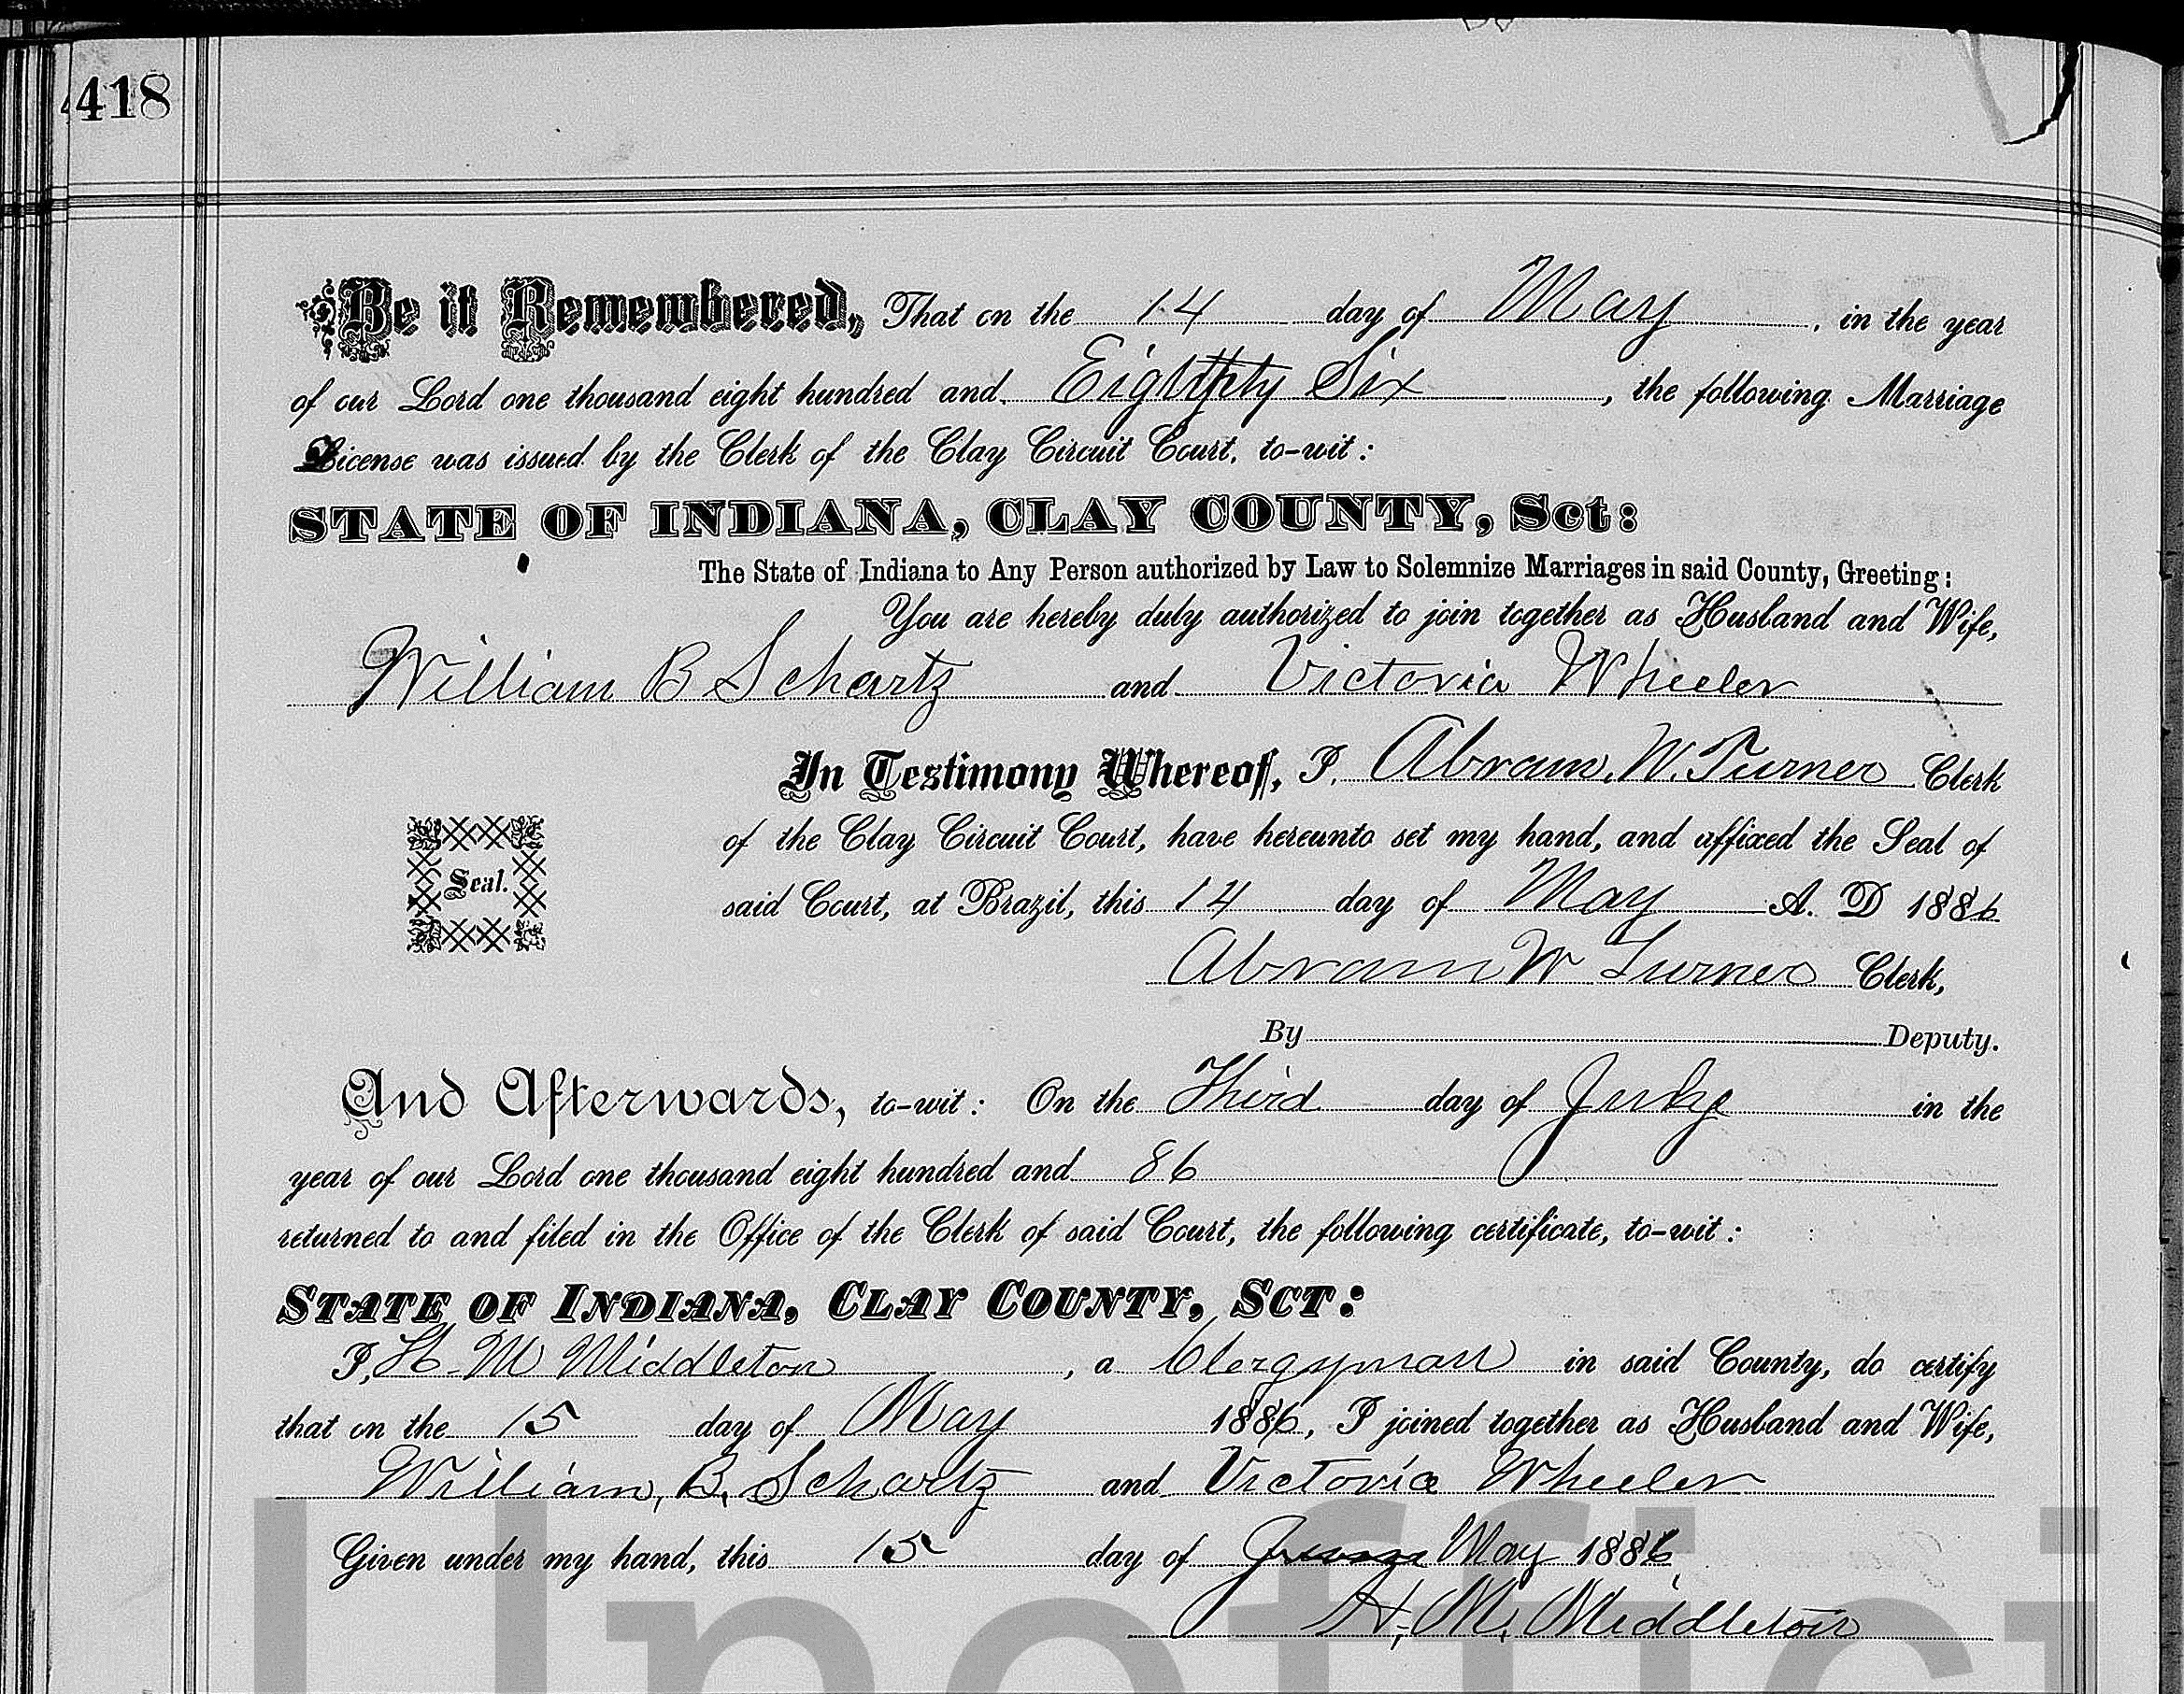 418
Be it Remembered, That on the 14 day of May, in the year
of our Lord one thousand eight hundred and Eighty Six, the following Marriage
License was issued by the Clerk of the Clay Circuit Court, to-wit:
STATE OF INDIANA, CLAY COUNTY, Sct:
The State of Indiana to Any Person authorized by Law to Solemnize Marriages in said County, Greeting:
You are hereby duly authorized to join together as Husband and Wife,
William B Schartz and Victoria Wheeler
In Testimony Whereof, I, Abram. W. Turner Clerk
of the Clay Circuit Court, have hereunto set my hand, and affixed the Seal of
Seal.
said Court, at Brazil, this 14 day of May A. D 1886
Abram W Turner Clerk,
By Deputy.
And Afterwards, to-wit: On the Third day of July in the
year of our Lord one thousand eight hundred and 86
returned to and filed in the Office of the Clerk of said Court, the following certificate, to-wit:
STATE OF INDIANA, CLAY COUNTY, SCT:
I, H. M Middleton, a Clergyman in said County, do certify
that on the 15 day of May 1886, I joined together as Husband and Wife,
William, B. Schartz and Victoria Wheeler
Given under my hand, this 15 day of May 1886
H. M. Middleton